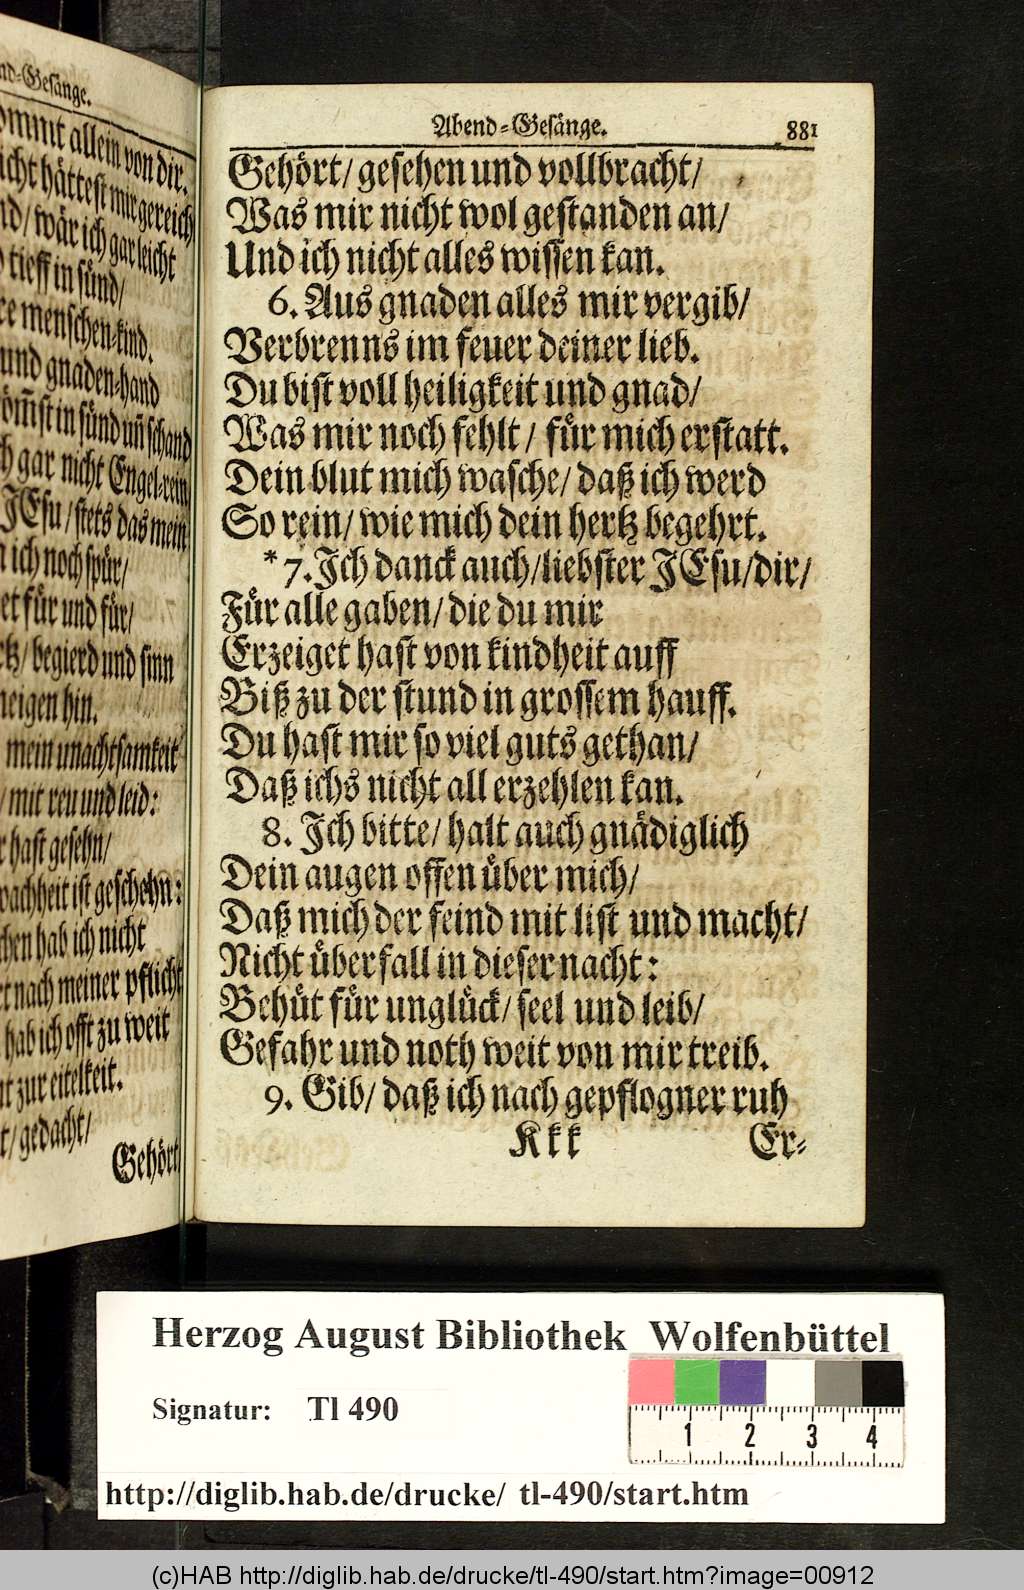 nd-Gesänge.
ommt allein von dir.
icht hättest mir gereich
nd/ wär ich gar leicht
tieff in sünd/
re menschen-kind.
und gnaden-hand
ömst in sünd uñ schand
h gar nicht Engel-rein/
JEsu/ stets das mein
n ich noch spür/
et für und für/
rtz/ begierd und sinn
neigen hin.
mein unachtsamkeit
/ mit reu und leid:
r hast gesehn/
wachheit ist geschehn:
chen hab ich nicht
rt nach meiner pflicht
hab ich offt zu weit
nt zur eitelkeit.
t/ gedacht/
Gehört/
Abend-Gesänge. 881
Gehört/ gesehen und vollbracht/
Was mir nicht wol gestanden an/
Und ich nicht alles wissen kan.
6. Aus gnaden alles mir vergib/
Verbrenns im feuer deiner lieb.
Du bist voll heiligkeit und gnad/
Was mir noch fehlt/ für mich erstatt.
Dein blut mich wasche/ daß ich werd
So rein/ wie mich dein hertz begehrt.
* 7. Ich danck auch/ liebster JEsu/ dir/
Für alle gaben/ die du mir
Erzeiget hast von kindheit auff
Biß zu der stund in grossem hauff.
Du hast mir so viel guts gethan/
Daß ichs nicht all erzehlen kan.
8. Ich bitte/ halt auch gnädiglich
Dein augen offen über mich/
Daß mich der feind mit list und macht/
Nicht überfall in dieser nacht:
Behüt für unglück/ seel und leib/
Gefahr und noth weit von mir treib.
9. Gib/ daß ich nach gepflogner ruh
Kkk Er-
Herzog August Bibliothek Wolfenbüttel
Signatur: Tl 490
1 2 3 4
http://diglib.hab.de/drucke/ tl-490/start.htm
(c)HAB http://diglib.hab.de/drucke/tl-490/start.htm?image=00912